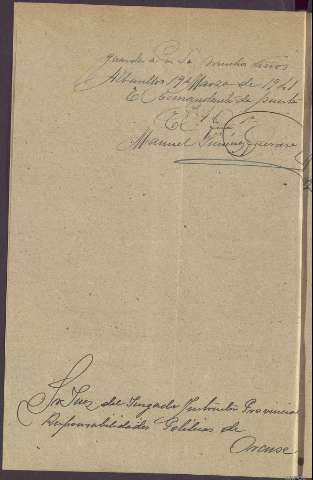 guarde a Vd muchos años
Albarellos 19 Marzo de 1941
El Comandante de puesto
Manuel Giménez Guerare
Sr Juez del Juzgado Instructor Provincial
Responsabilidades Políticas de
Orense